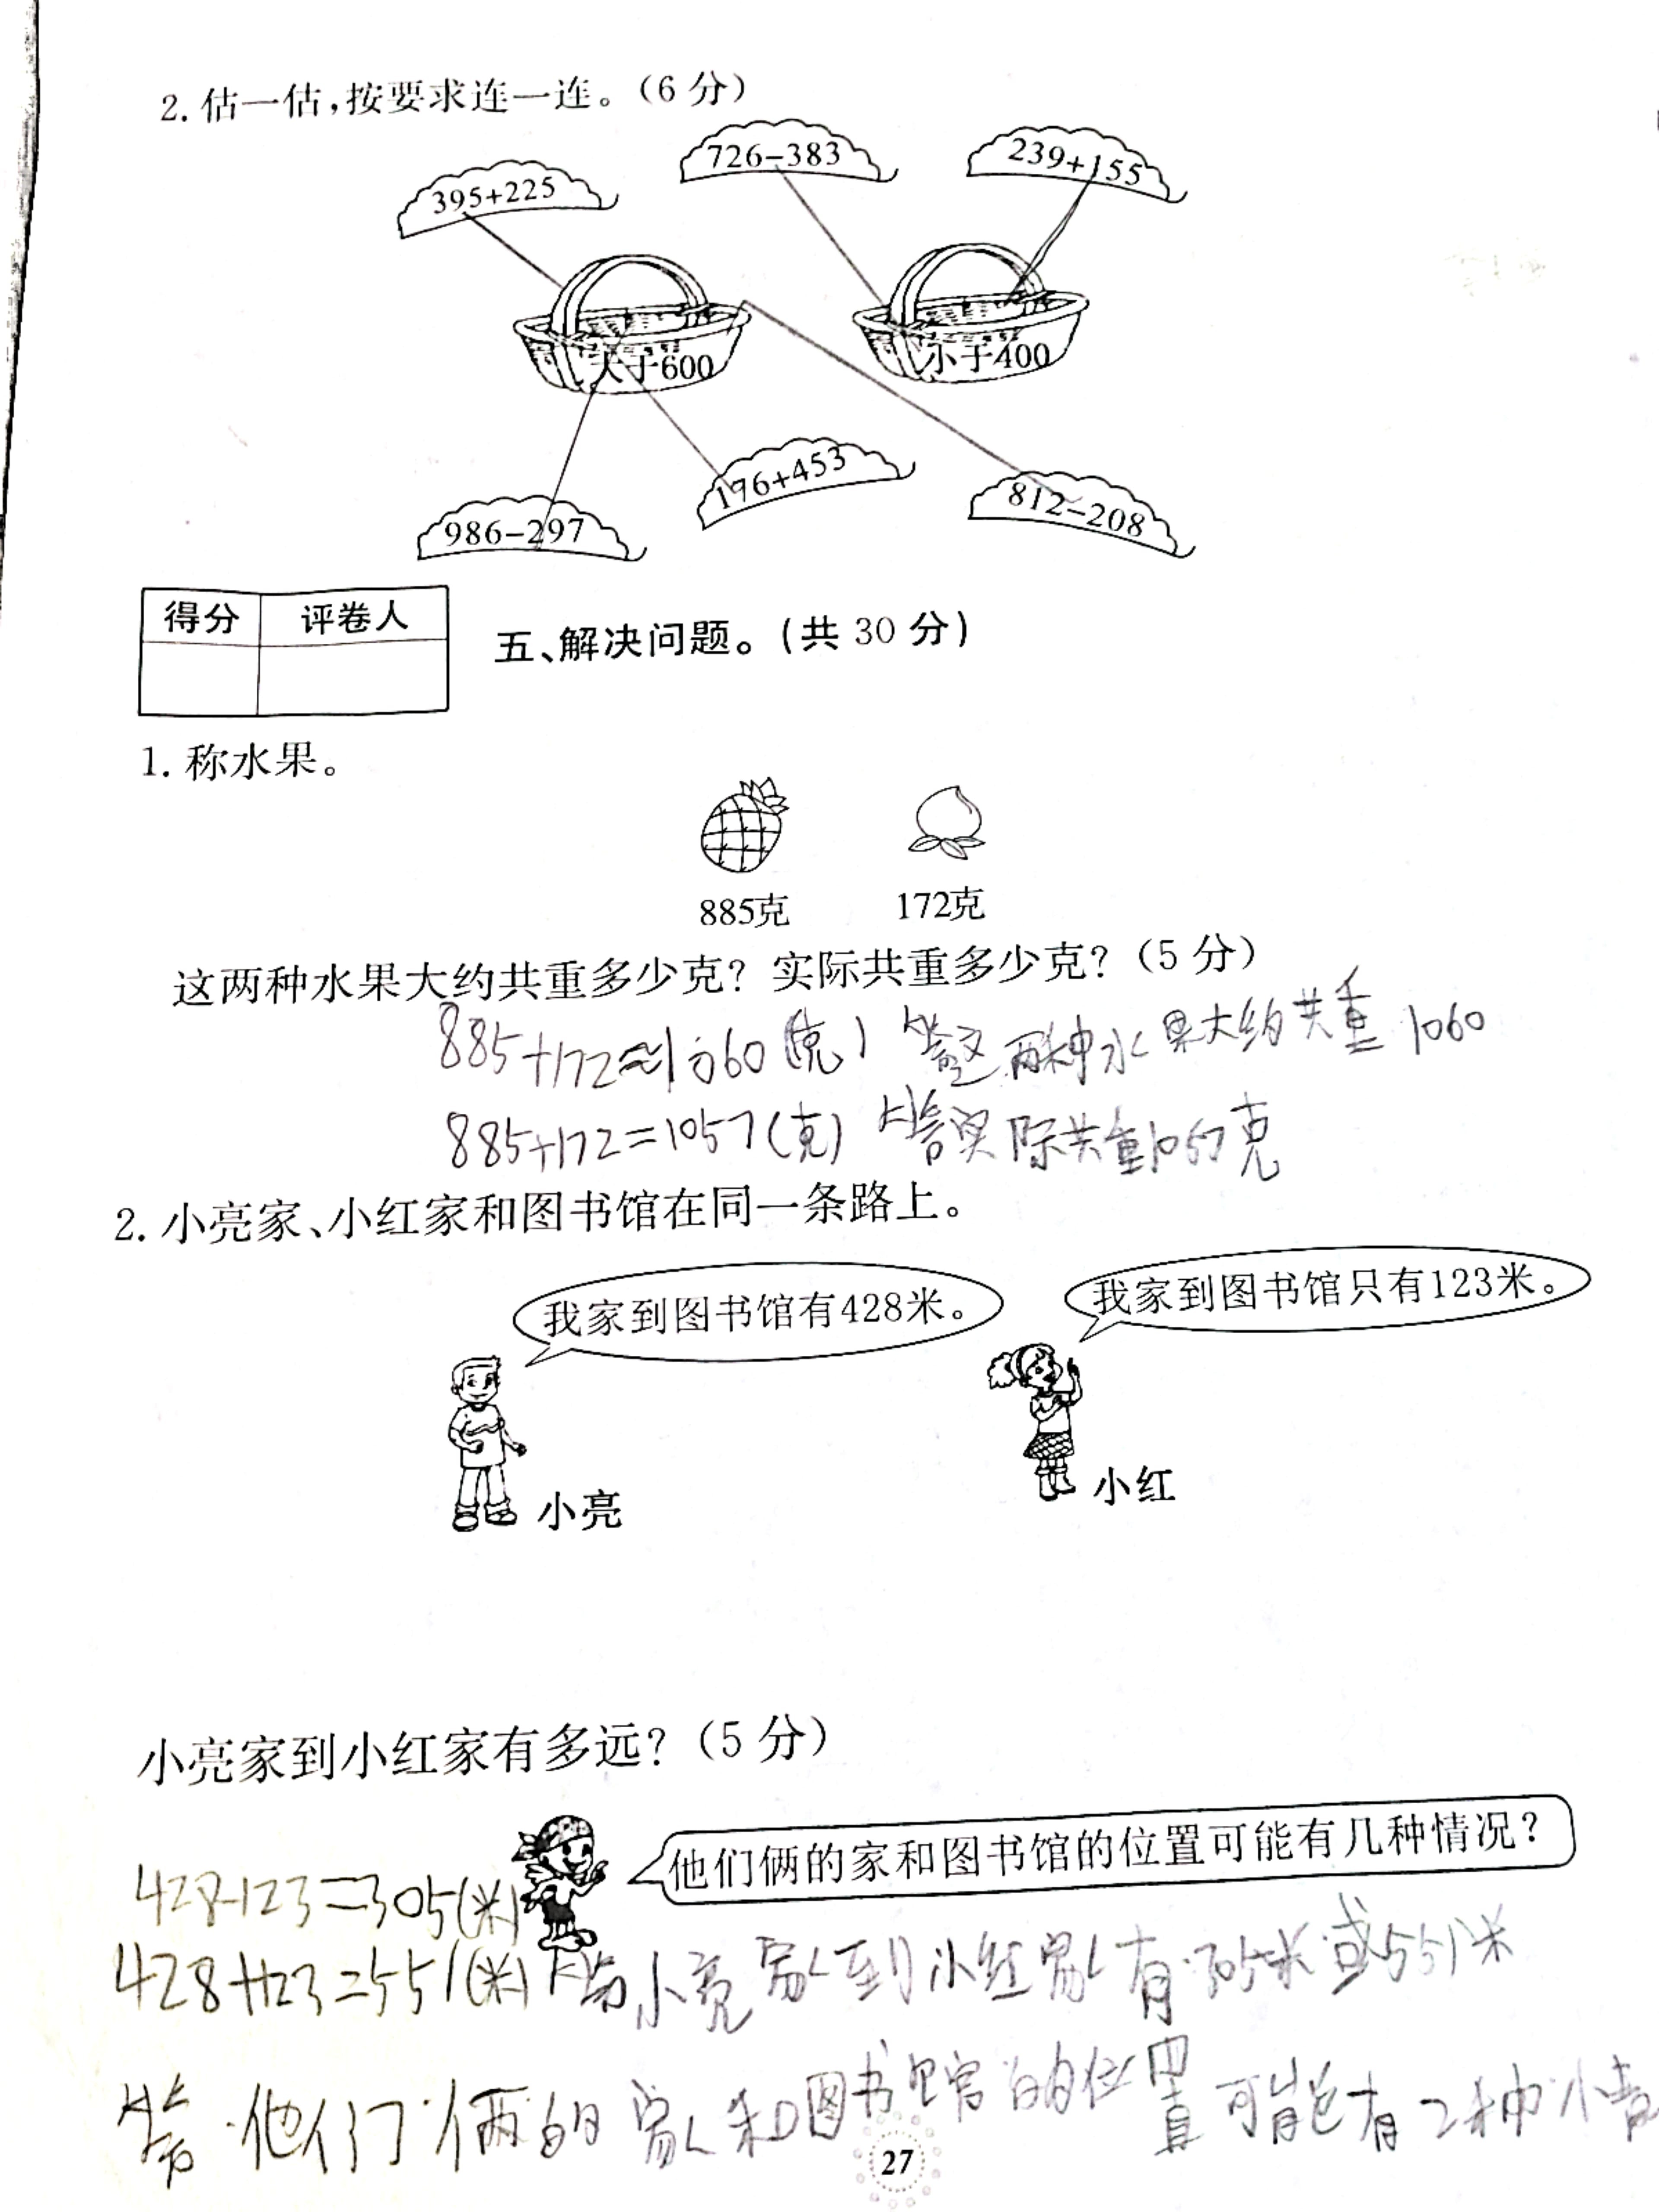 2.估一估,按要求连一连。(6分)
395+225
726-383
239+155
大于600
小于400
986-297
176+453
812-208
得分 评卷人
五、解决问题。(共30分)
1.称水果。
885克 172克
这两种水果大约共重多少克?实际共重多少克?(5分)
885+172≈1060(克) 答这两种水果大约共重1060
885+172=1057(克) 答实际共重1057克
2.小亮家、小红家和图书馆在同一条路上。
我家到图书馆有428米。
我家到图书馆只有123米。
小亮
小红
小亮家到小红家有多远?(5分)
他们俩的家和图书馆的位置可能有几种情况?
428-123=305(米)
428+123=551(米) 答小亮家到小红家有305米或551米
答他们俩的家和图书馆的位置可能有2种情
27